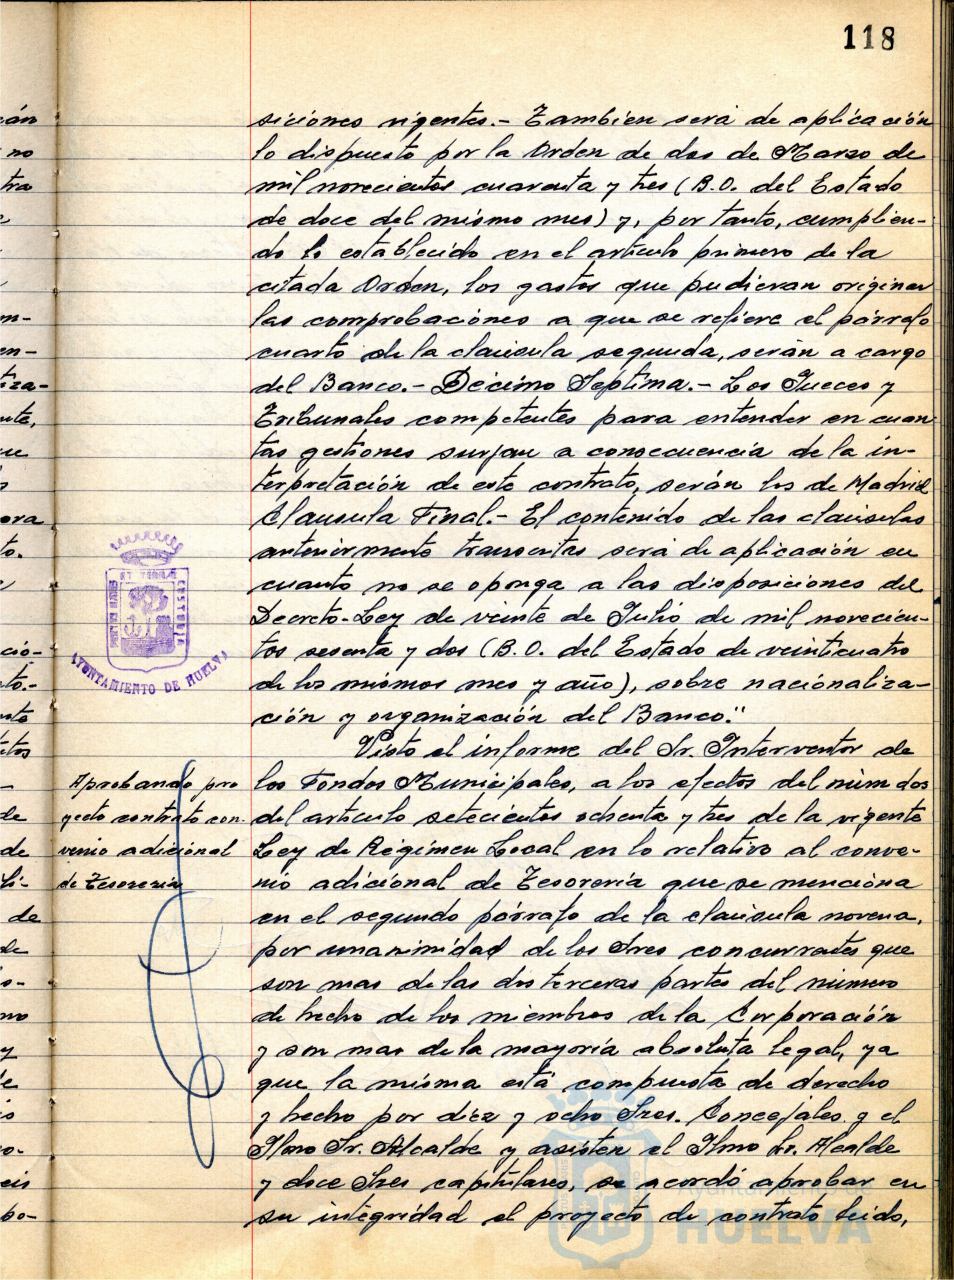 118
siciones vigentes.- Tambien será de aplicación
lo dispuesto por la Orden de dos de Marzo de
mil novecientos cuarenta y tres (B.O. del Estado
de doce del mismo mes) y, por tanto, cumplien-
do lo establecido en el artículo primero de la
citada Orden, los gastos que pudieran originar
las comprobaciones a que se refiere el párrafo
cuarto de la cláusula segunda, serán a cargo
del Banco.- Décimo Séptima.- Los Jueces y
Tribunales competentes para entender en cuan
tas gestiones surjan a consecuencia de la in-
terpretación de este contrato, serán los de Madrid
Clausula Final.- El contenido de las cláusulas
anteriormente transcritas será de aplicación en
cuanto no se oponga a las disposiciones del
Decreto-Ley de veinte de Julio de mil novecien-
tos sesenta y dos (B.O. del Estado de veinticuatro
de los mismos mes y año), sobre nacionaliza-
ción y organización del Banco."
Visto el informe del Sr. Interventor de
los Fondos Municipales, a los efectos del núm dos
del artículo setecientos ochenta y tres de la vigente
Ley de Régimen Local en lo relativo al conve-
nio adicional de Tesorería que se menciona
en el segundo párrafo de la cláusula novena,
por unanimidad de los Sres concurrentes que
son mas de las dos terceras partes del número
de hecho de los miembros de la Corporación
y son mas de la mayoría absoluta legal, ya
que la misma está compuesta de derecho
y hecho por diez y ocho Sres. Concejales y el
Ilmo Sr. Alcalde y asisten el Ilmo Sr. Alcalde
y doce Sres capitulares, se acordó aprobar en
su integridad el proyecto de contrato leido,
Aprobando pro
yecto contrato con-
venio adicional
de Tesorería
AYUNTAMIENTO DE HUELVA
Ayuntamiento de
HUELVA